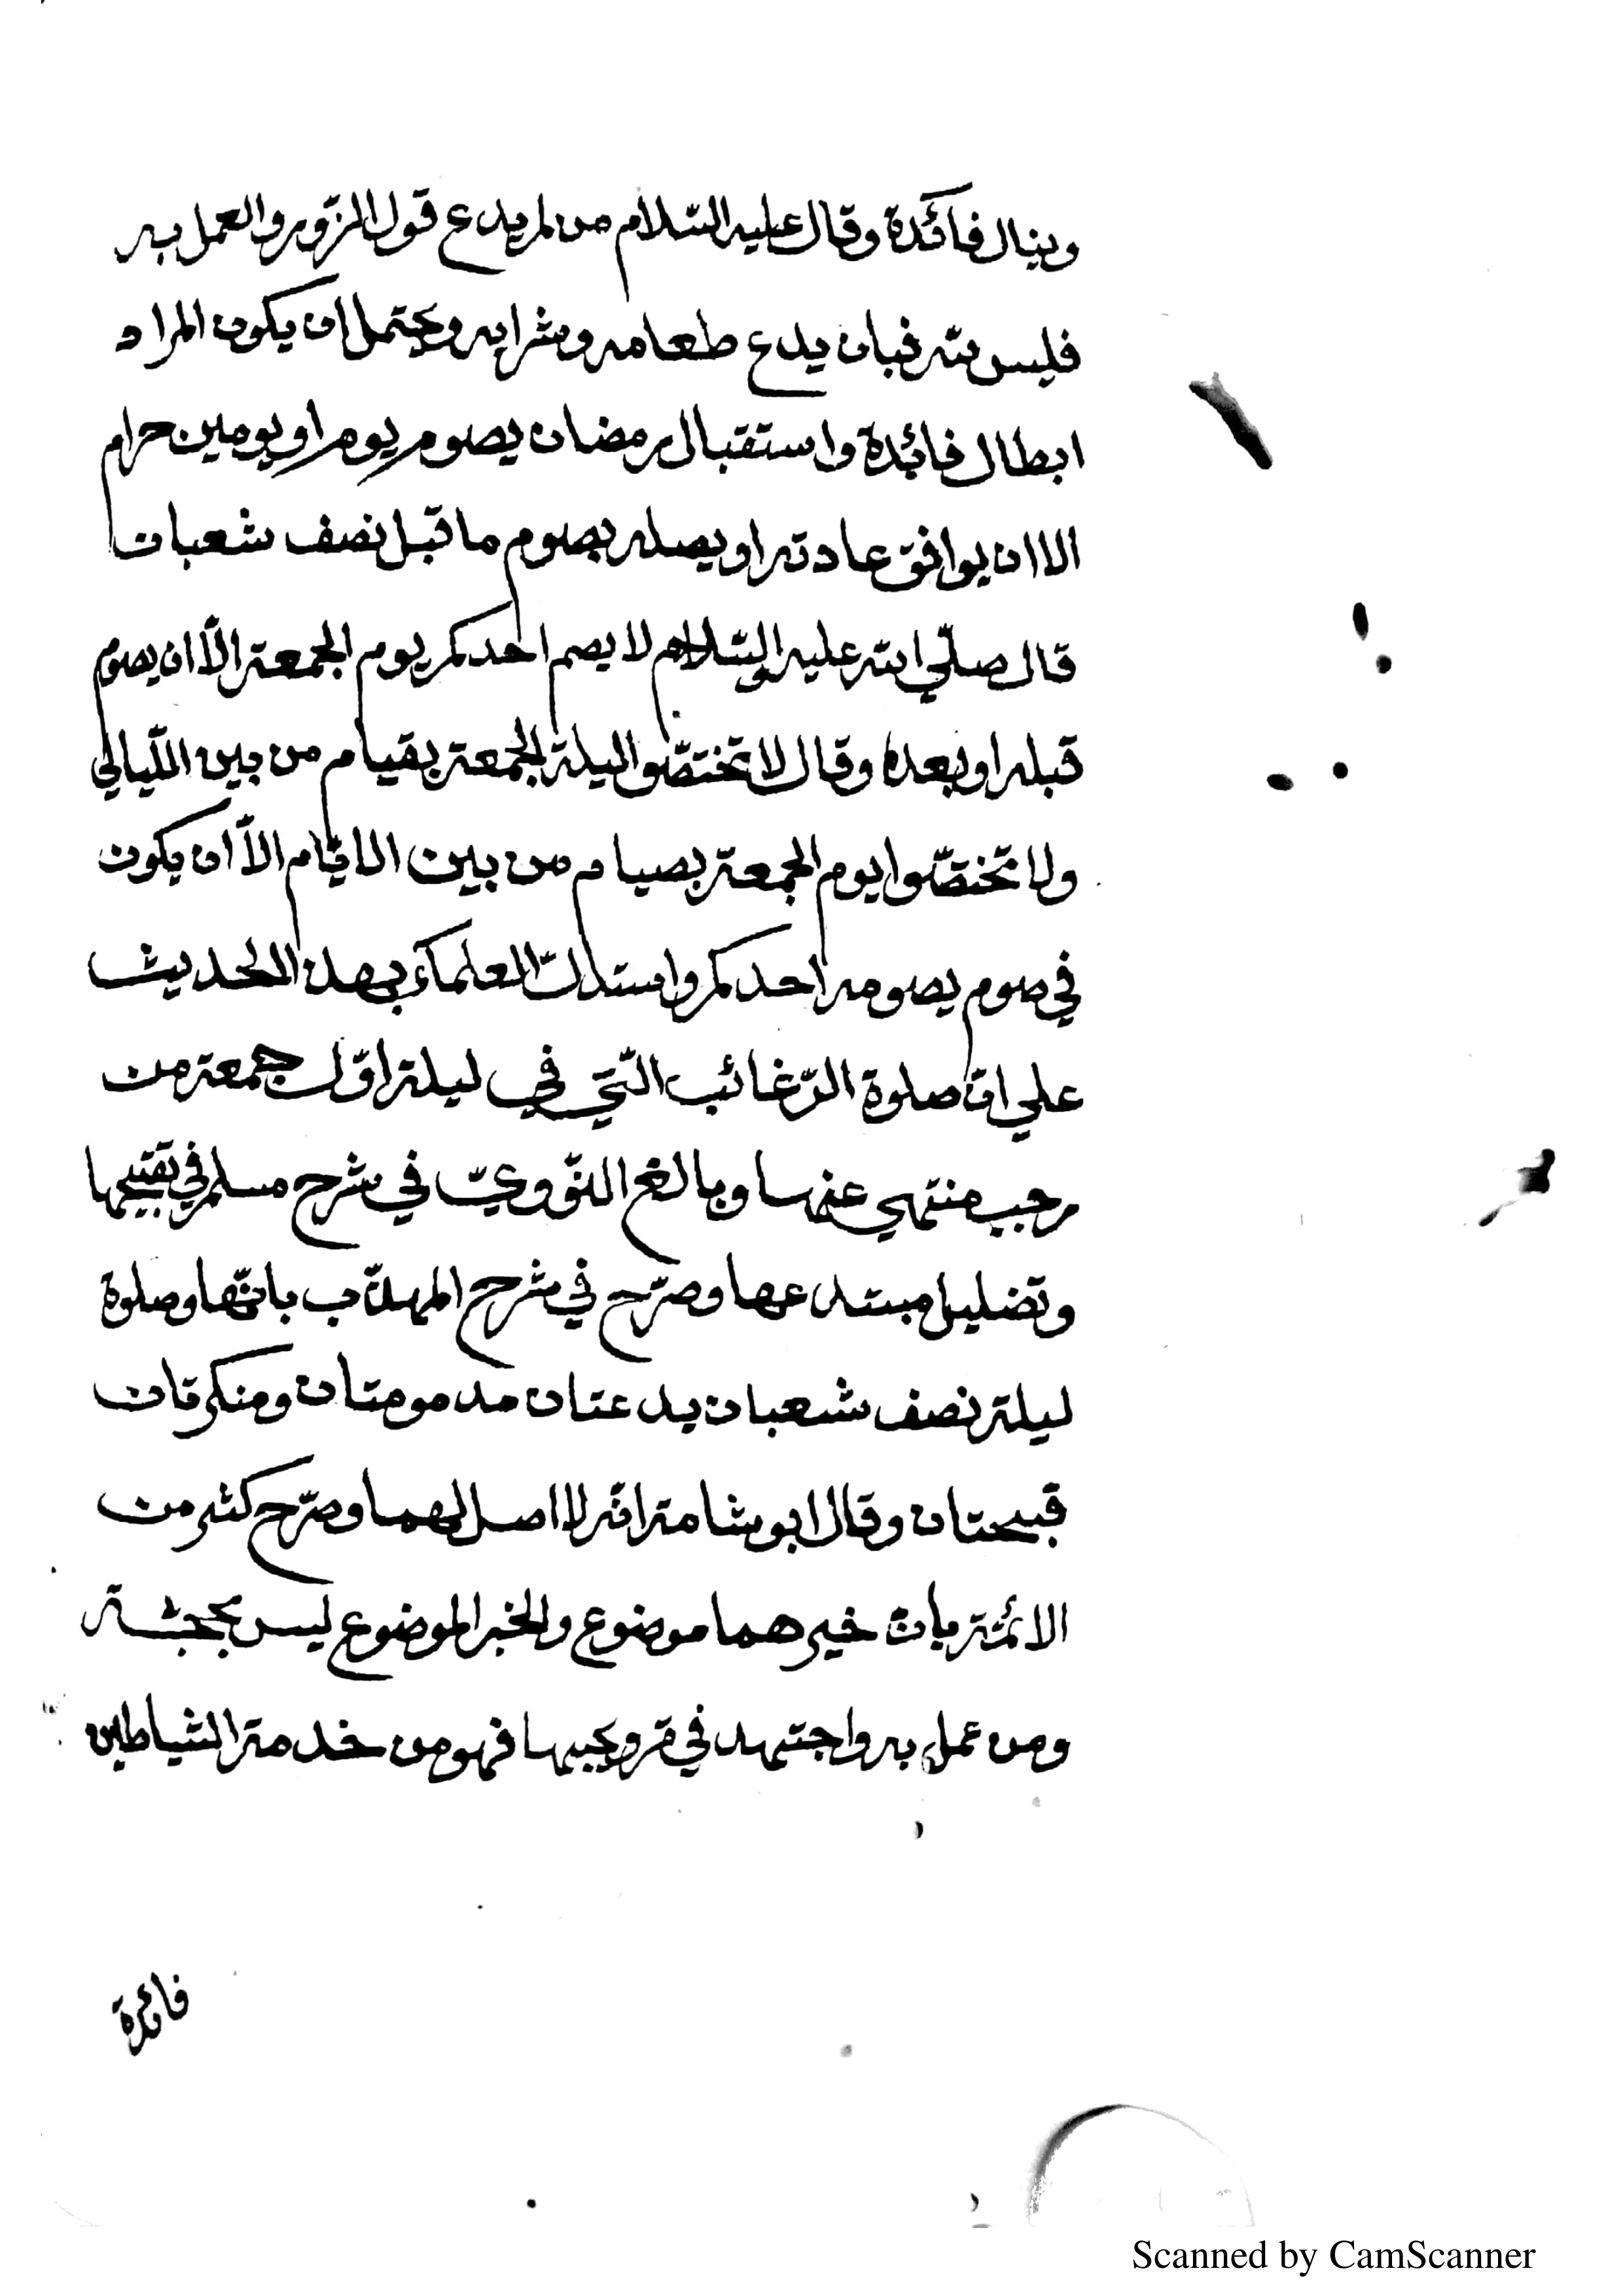 وينال فائدة وقال عليه السّلام من لم يدع قول الزّور والعمل به
فليس لله فبان يدع طعامه وشرابه ويحتمل ان يكون المراد
ابطال فائدة واستقبال رمضان يصوم يوم او يومين حرام
الا ان يوافق عادته او يصله بصوم ما قبل نصف شعبان
قال صلّي الله عليه السّلام لا يصم احدكم يوم الجمعة الاّ ان يصوم
قبله او بعده وقال لا تختصّوا ليلة الجمعة بقيام من بين اللّيالي
ولا تختصّوا يوم الجمعة بصيام من بين الايّام الاّ ان يكون
في صوم يصومه احدكم واستدلّ العلماء بهذا الحديث
علي انّ صلوة الرّغائب الّتي في ليلة اوّل جمعة من
رجب منتهي عنها وبالغ النّوويّ في شرح مسلم في تقبيحها
وتضليل مبتدعها وصرّح في شرح المهذّب بانّها وصلوة
ليلة نصف شعبان بدعتان مذمومتان ومنكرتان
قبيحتان وقال ابو شامة انّه لا اصل لهما وصرّح كثير من
الائمّة بانّ خبرهما موضوع والخبر الموضوع ليس بحجّة
ومن عمل به واجتهد في ترويجها فهو من خدمة الشياطين
فائدة
Scanned by CamScanner